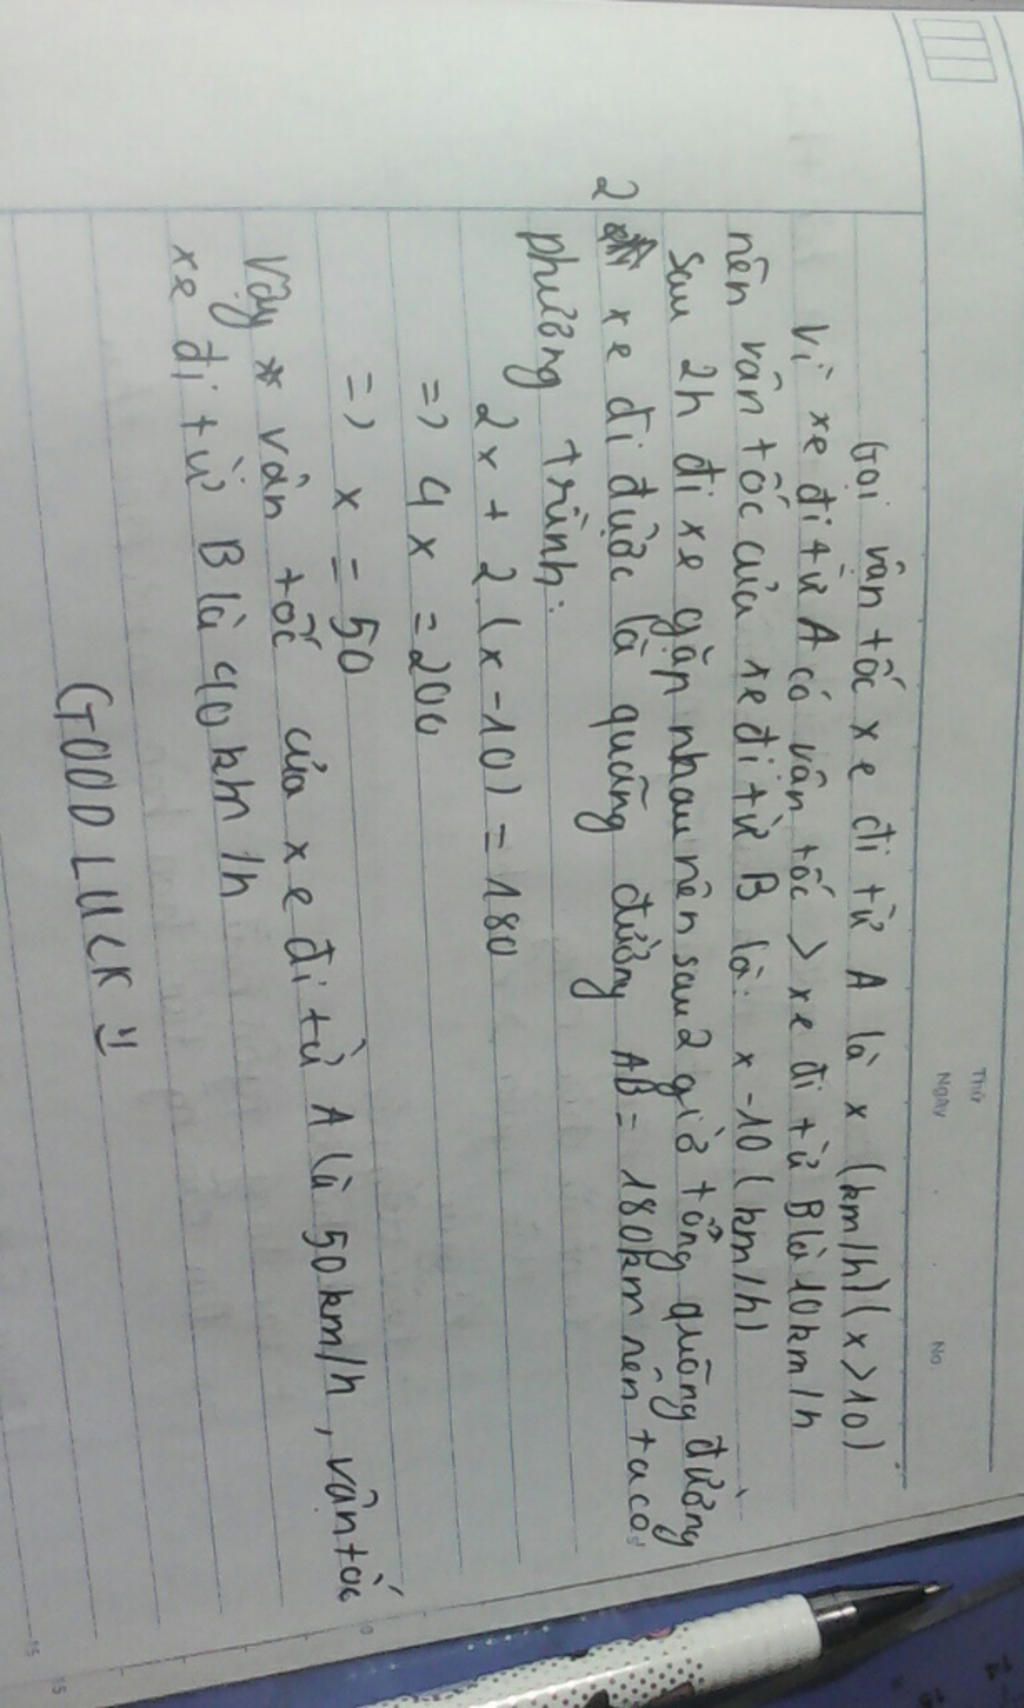 Thứ
Ngày
No.
Gọi vận tốc xe đi từ A là x (km/h) (x > 10)
Vì xe đi từ A có vân tốc > xe đi từ B là 10km/h
nên vân tốc của xe đi từ B là: x - 10 (km/h)
sau 2h đi xe gặp nhau nên sau 2 giờ tổng quãng đường
2 xe đi được là quãng đường AB = 180km nên ta có
phương trình:
2x + 2(x - 10) = 180
=> 4x = 200
=> x = 50
Vậy vân tốc của xe đi từ A là 50km/h, vân tốc
xe đi từ B là 40km/h
GOOD LUCK =)
10
15
15